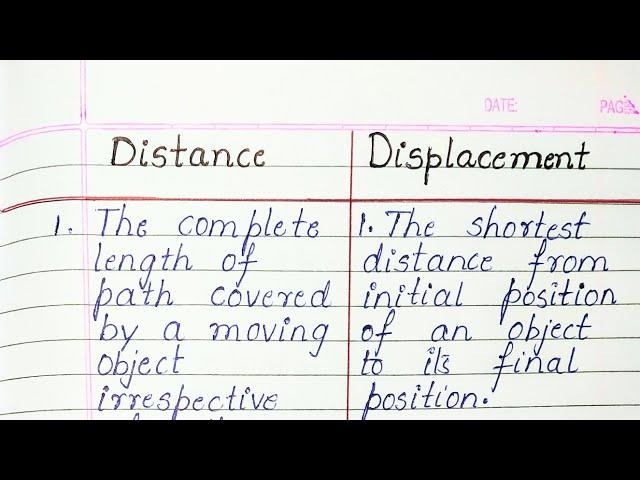 DATE: PAGE
Distance Displacement
1. The complete
length of
path covered
by a moving
object
irrespective
1. The shortest
distance from
initial position
of an object
to its final
position.